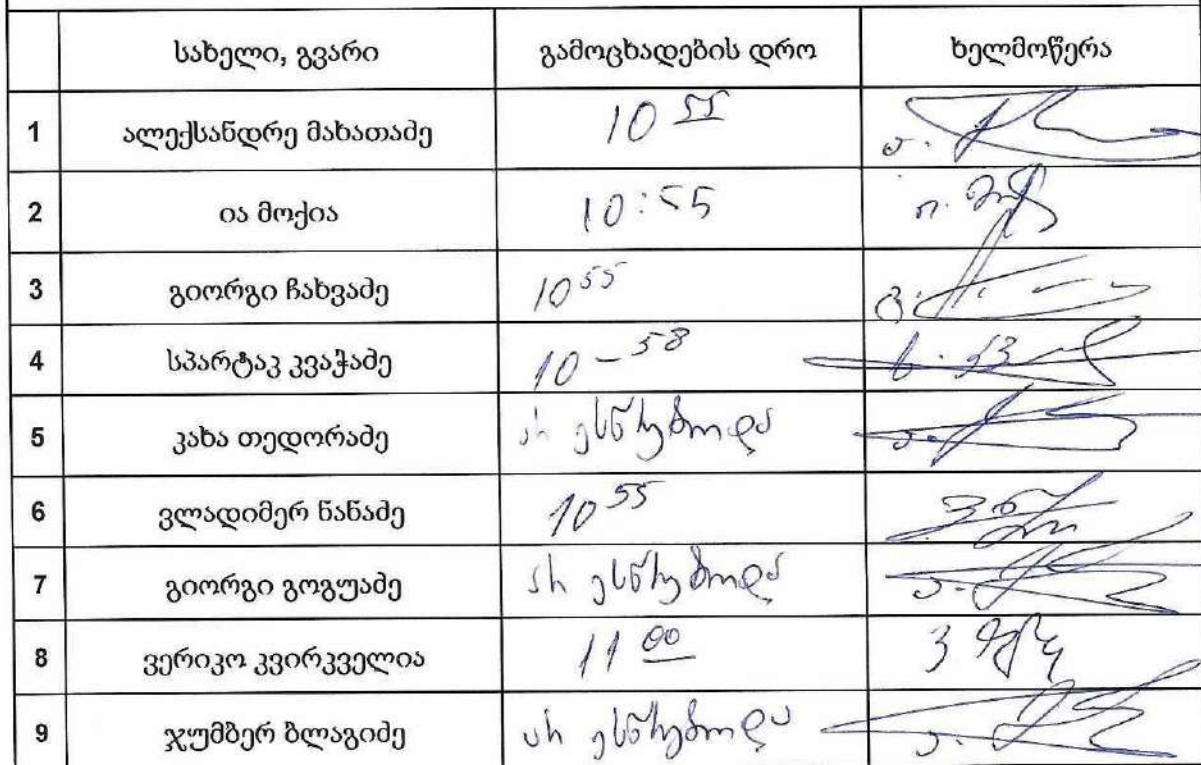 სახელი, გვარი გამოცხადების დრო ხელმოწერა
1 ალექსანდრე მახათაძე 10 55
2 ია მოქია 10:55
3 გიორგი ჩახვაძე 10 55
4 სპარტაკ კვაჭაძე 10 - 58
5 კახა თედორაძე არ ესწრებოდა
6 ვლადიმერ ნანაძე 10 55
7 გიორგი გოგუაძე არ ესწრებოდა
8 ვერიკო კვირკველია 11 00
9 ჯუმბერ ბლაგიძე არ ესწრებოდა